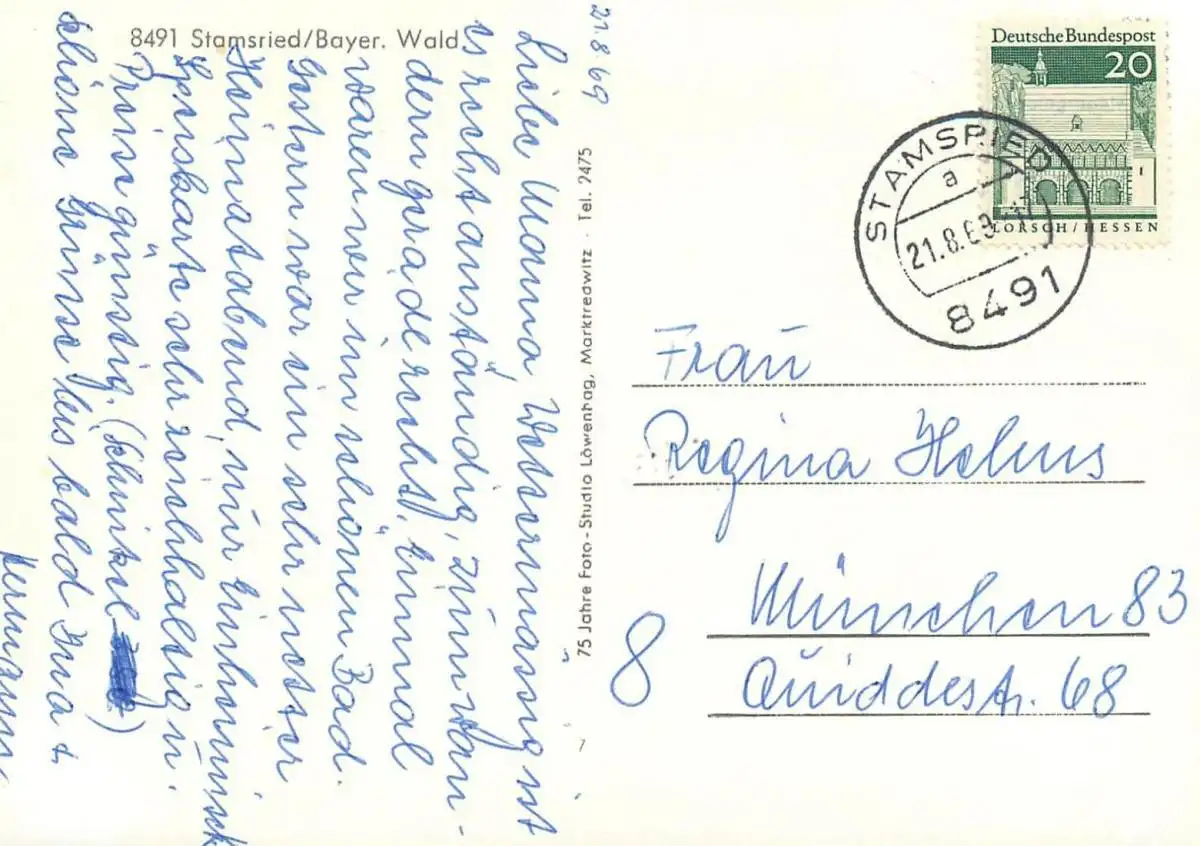 8491 Stamsried/Bayer. Wald
21.8.69
Liebe Mama Wettermässig ist
es recht anständig, zum Wan-
dern gerade recht, Einmal
waren wir im schönen Bad.
Gestern war ein sehr netter
Heimatabend, nur Einheimische
Speiskarte sehr reichhaltig u.
Preisgünstig. (Schnitzel )
schöne Grüsse bis bald Eure
Hermann
75 Jahre Foto - Studio Löwenhag, Marktredwitz · Tel. 2475
7
Deutsche Bundespost
20
LORSCH/HESSEN
STAMSRIED
a
21.8.69
8491
Frau
Regina Helms
8 München 83
Quiddestr. 68